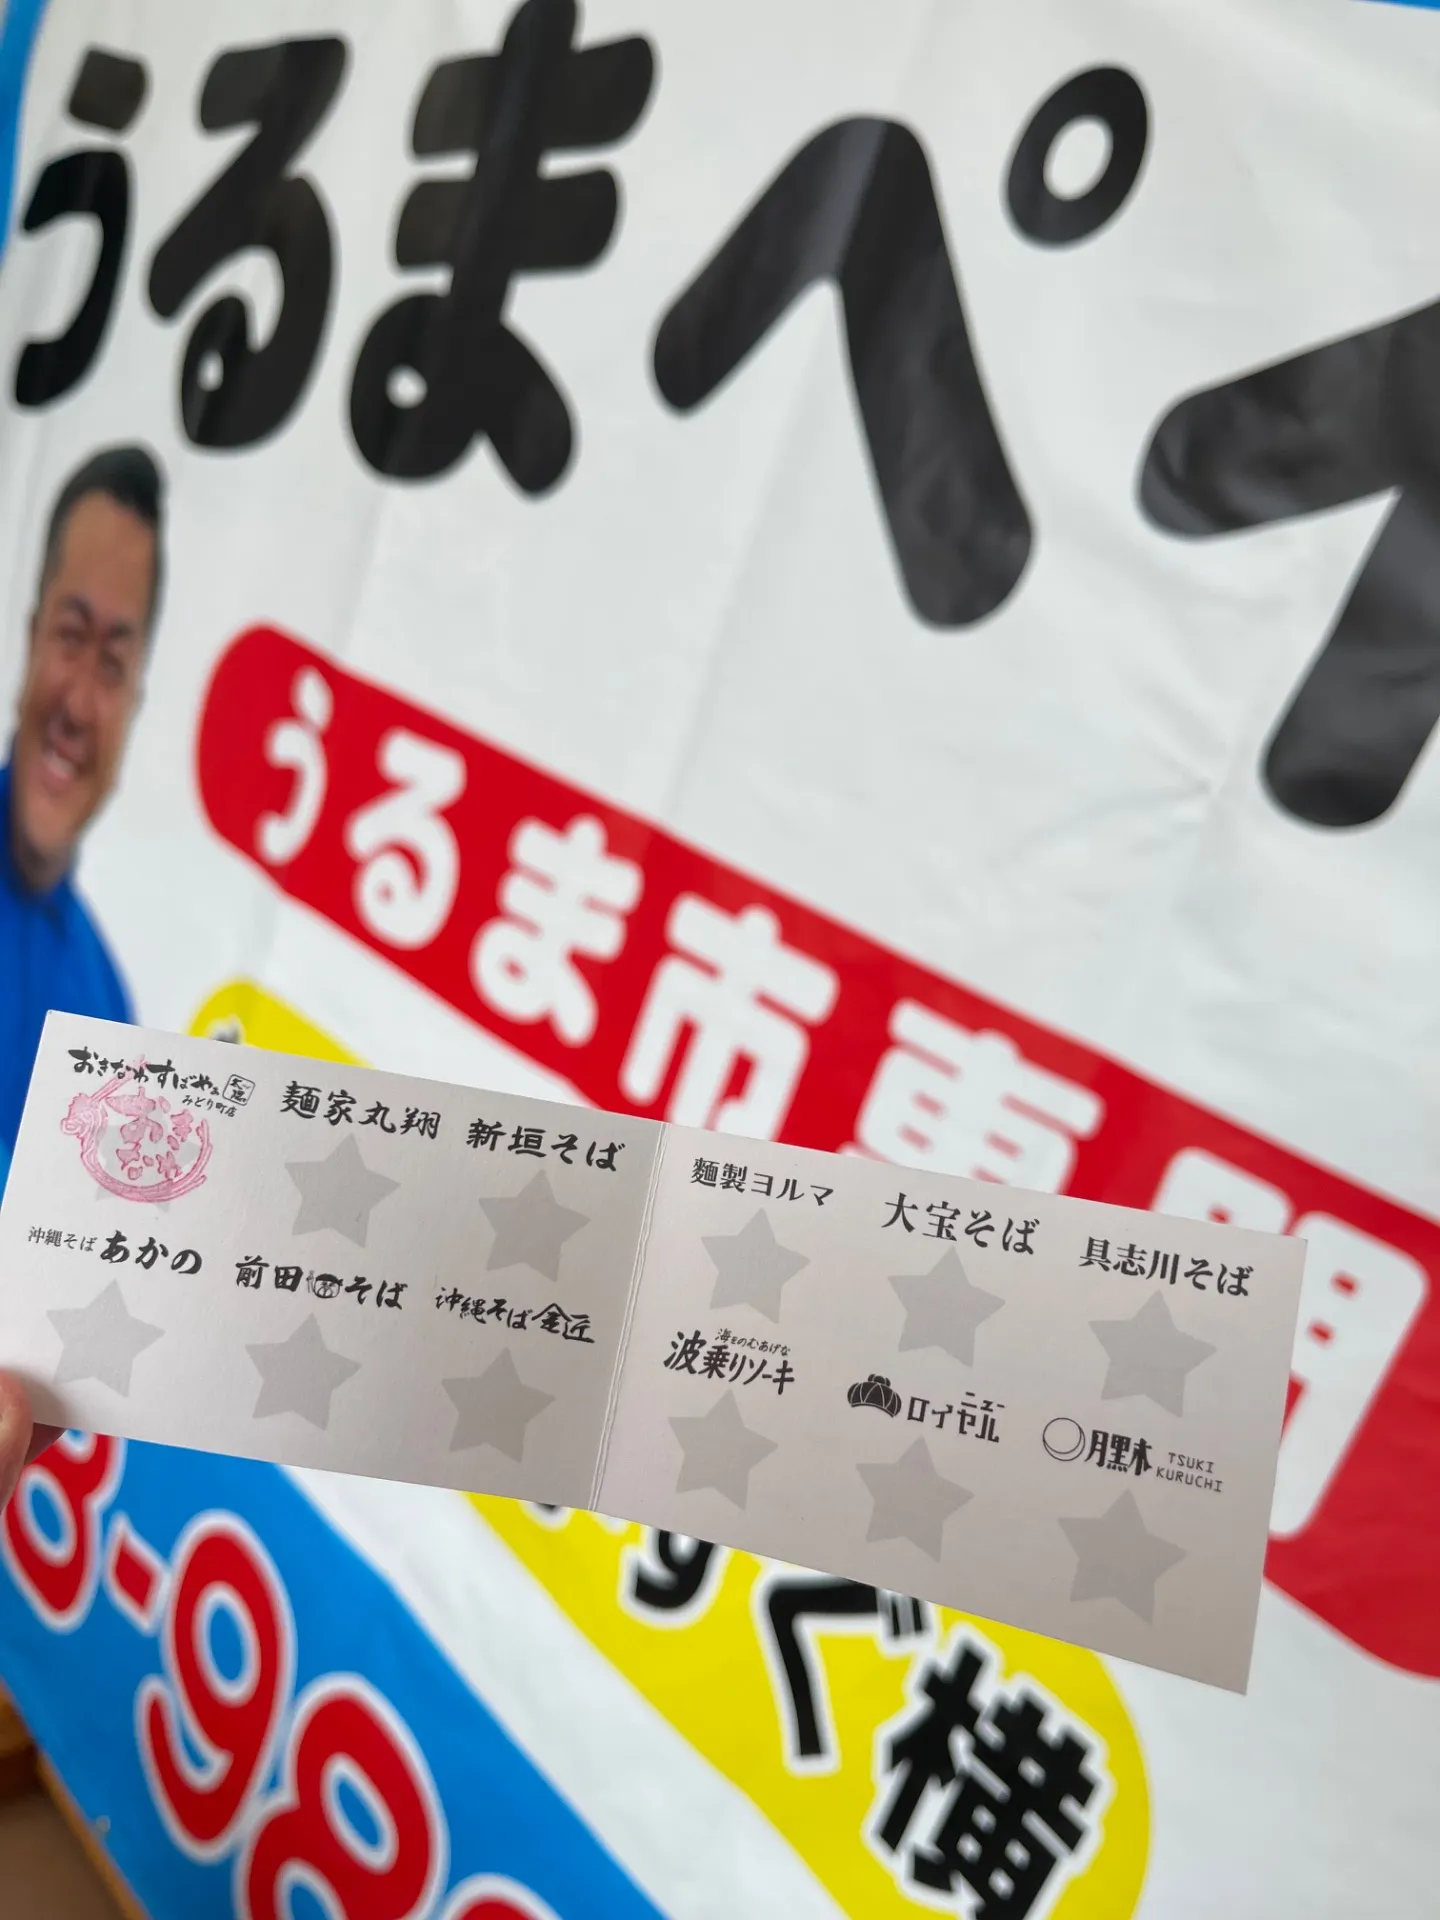 うるまペイ
うるま市専門
すぐ横
8-98
おきなわすばやぁ
みとり町店
麺家丸翔
新垣そば
沖縄そば あかの
前田そば
沖縄そば金匠
麺製ヨルマ
大宝そば
具志川そば
海をのむあげな
波乗りソーキ
ニュー
ロイヤル
月黑木 TSUKI
KURUCHI